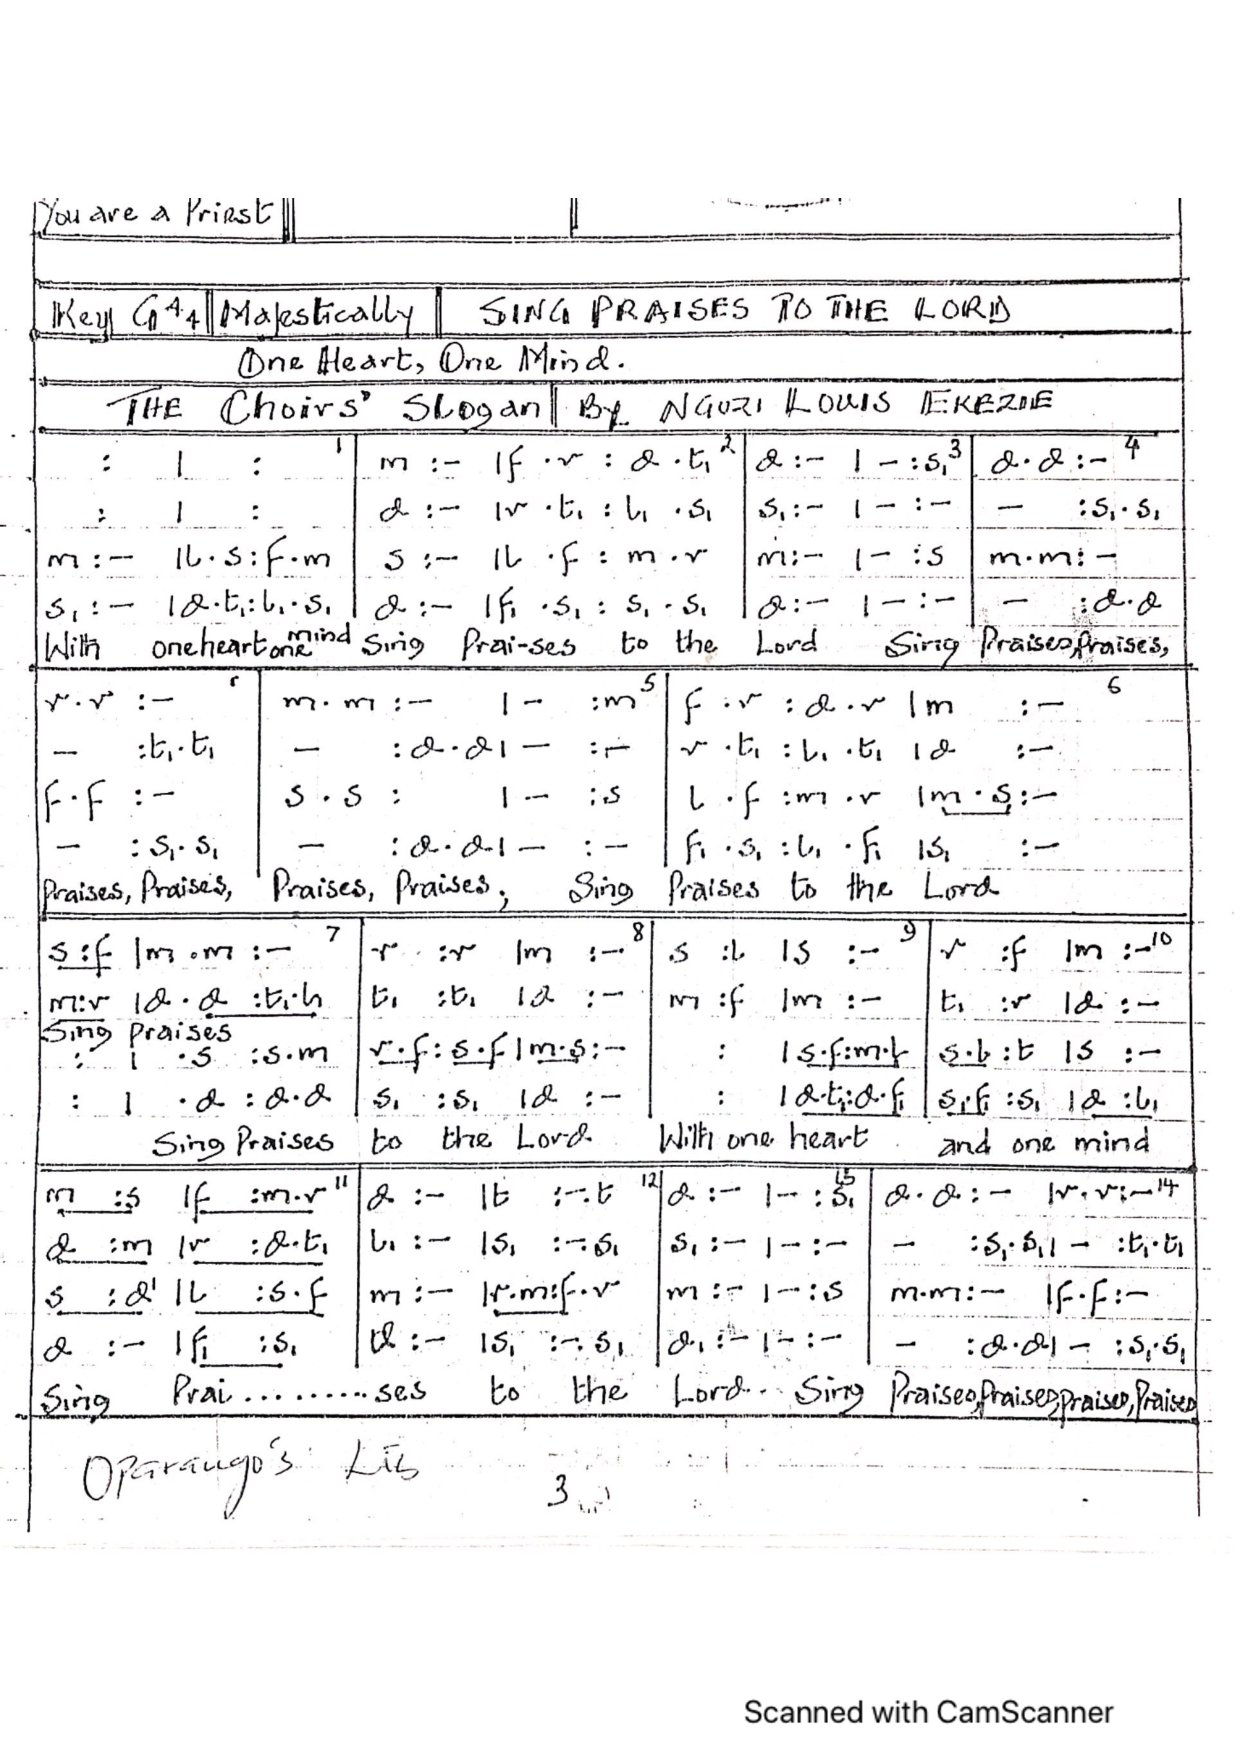 You are a Priest
Key G 4/4 Majestically SING PRAISES TO THE LORD
One Heart, One Mind.
THE Choirs' Slogan By NGOZI LOUIS EKEZIE
: | : 1 m :- |f .r : d .t₁ 2 d :- | - :s₁ 3 d.d :- 4
: | : d :- |r .t₁ : l₁ .s₁ s₁ :- | - :- - :s₁.s₁
m :- |l.s : f.m s :- |l .f : m .r m :- | - :s m.m :-
s₁ :- |d.t₁ : l₁.s₁ d :- |f₁ .s₁ : s₁ .s₁ d :- | - :- - :d.d
With one heart one mind Sing Prai-ses to the Lord Sing Praises, Praises,
r.r :- m.m :- | - :m 5 f .r : d .r |m :- 6
- :t₁.t₁ - :d.d | - :- r .t₁ : l₁ .t₁ |d :-
f.f :- s.s : | - :s l .f :m .r |m.s :-
- :s₁.s₁ - :d.d | - :- f₁ .s₁ :l₁ .f₁ |s₁ :-
Praises, Praises, Praises, Praises, Sing Praises to the Lord
s :f |m.m :- 7 r :r |m :- 8 s :l |s :- 9 r :f |m :- 10
m:r |d.d :t₁.l₁ t₁ :t₁ |d :- m :f |m :- t₁ :r |d :-
Sing Praises
: | .s :s.m r.f : s.f |m.s :- : |s.f:m.f s.l :t |s :-
: | .d :d.d s₁ :s₁ |d :- : |d.t₁:d.f₁ s₁.f₁ :s₁ |d :l₁
Sing Praises to the Lord With one heart and one mind
m :s |f :m.r 11 d :- |t :-.t 12 d :- | - :s₁ 13 d.d :- |r.r :- 14
d :m |r :d.t₁ l₁ :- |s₁ :-.s₁ s₁ :- | - :- - :s₁.s₁ | - :t₁.t₁
s :d' |l :s.f m :- |r.m:f.r m :- | - :s m.m :- |f.f :-
d :- |f₁ :s₁ d :- |s₁ :-.s₁ d₁ :- | - :- - :d.d | - :s₁.s₁
Sing Prai..........ses to the Lord.. Sing Praises, Praises, Praises, Praises
3
Scanned with CamScanner